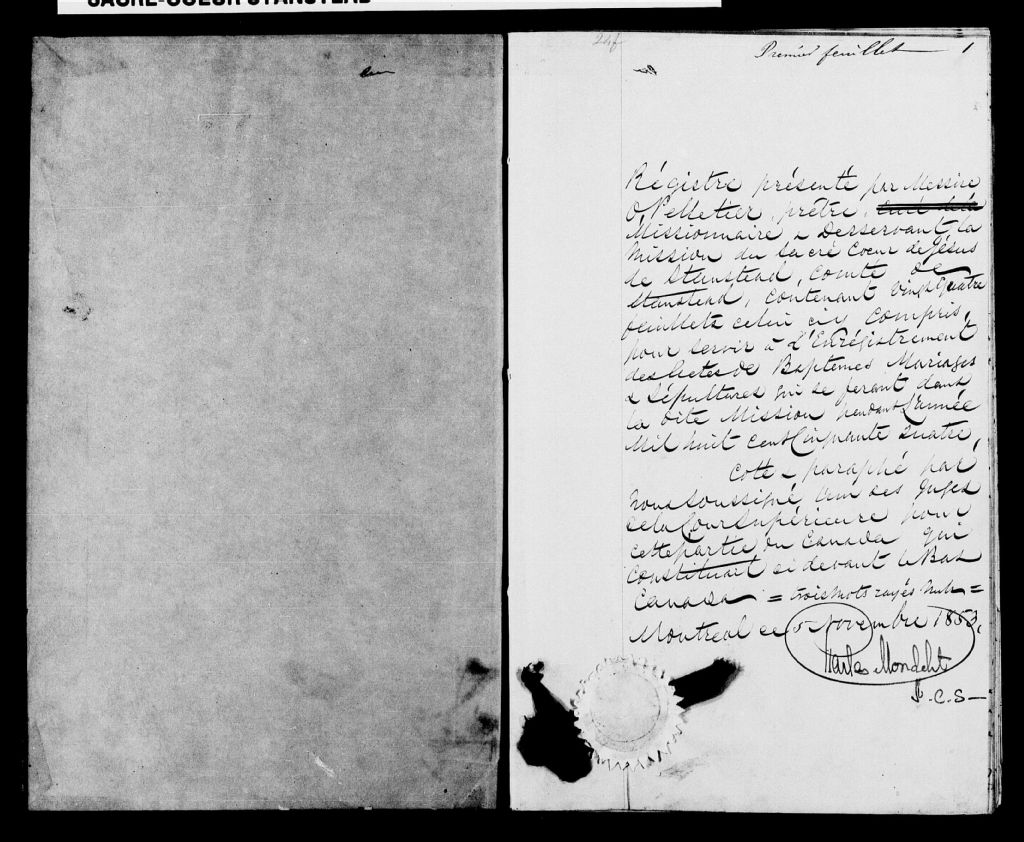 SACRÉ-COEUR STANSTEAD
24f
Premier feuillet 1
Régistre présenté par Messire
O, Pelletier, prêtre, curé
Missionnaire & Desservant la
Mission du Sacré Coeur de Jésus
de Stanstead, Comté de
Stanstead, contenant vingt quatre
feuillets celui ci y compris,
pour servir à l'Enrégistrement
des Actes de Baptemes Mariages
& Sépultures qui se feront dans
la dite Mission pendant l'année
Mil huit cent Cinquante quatre,
Cotté & paraphé par
Nous Soussigné, l'un des Juges
de la Cour Supérieure pour
cette partie du Canada qui
Constituait ci devant le Bas
Canada = trois mots rayés nuls =
Montreal ce 5 novembre 1853,
Charles Mondelet
J. C. S—